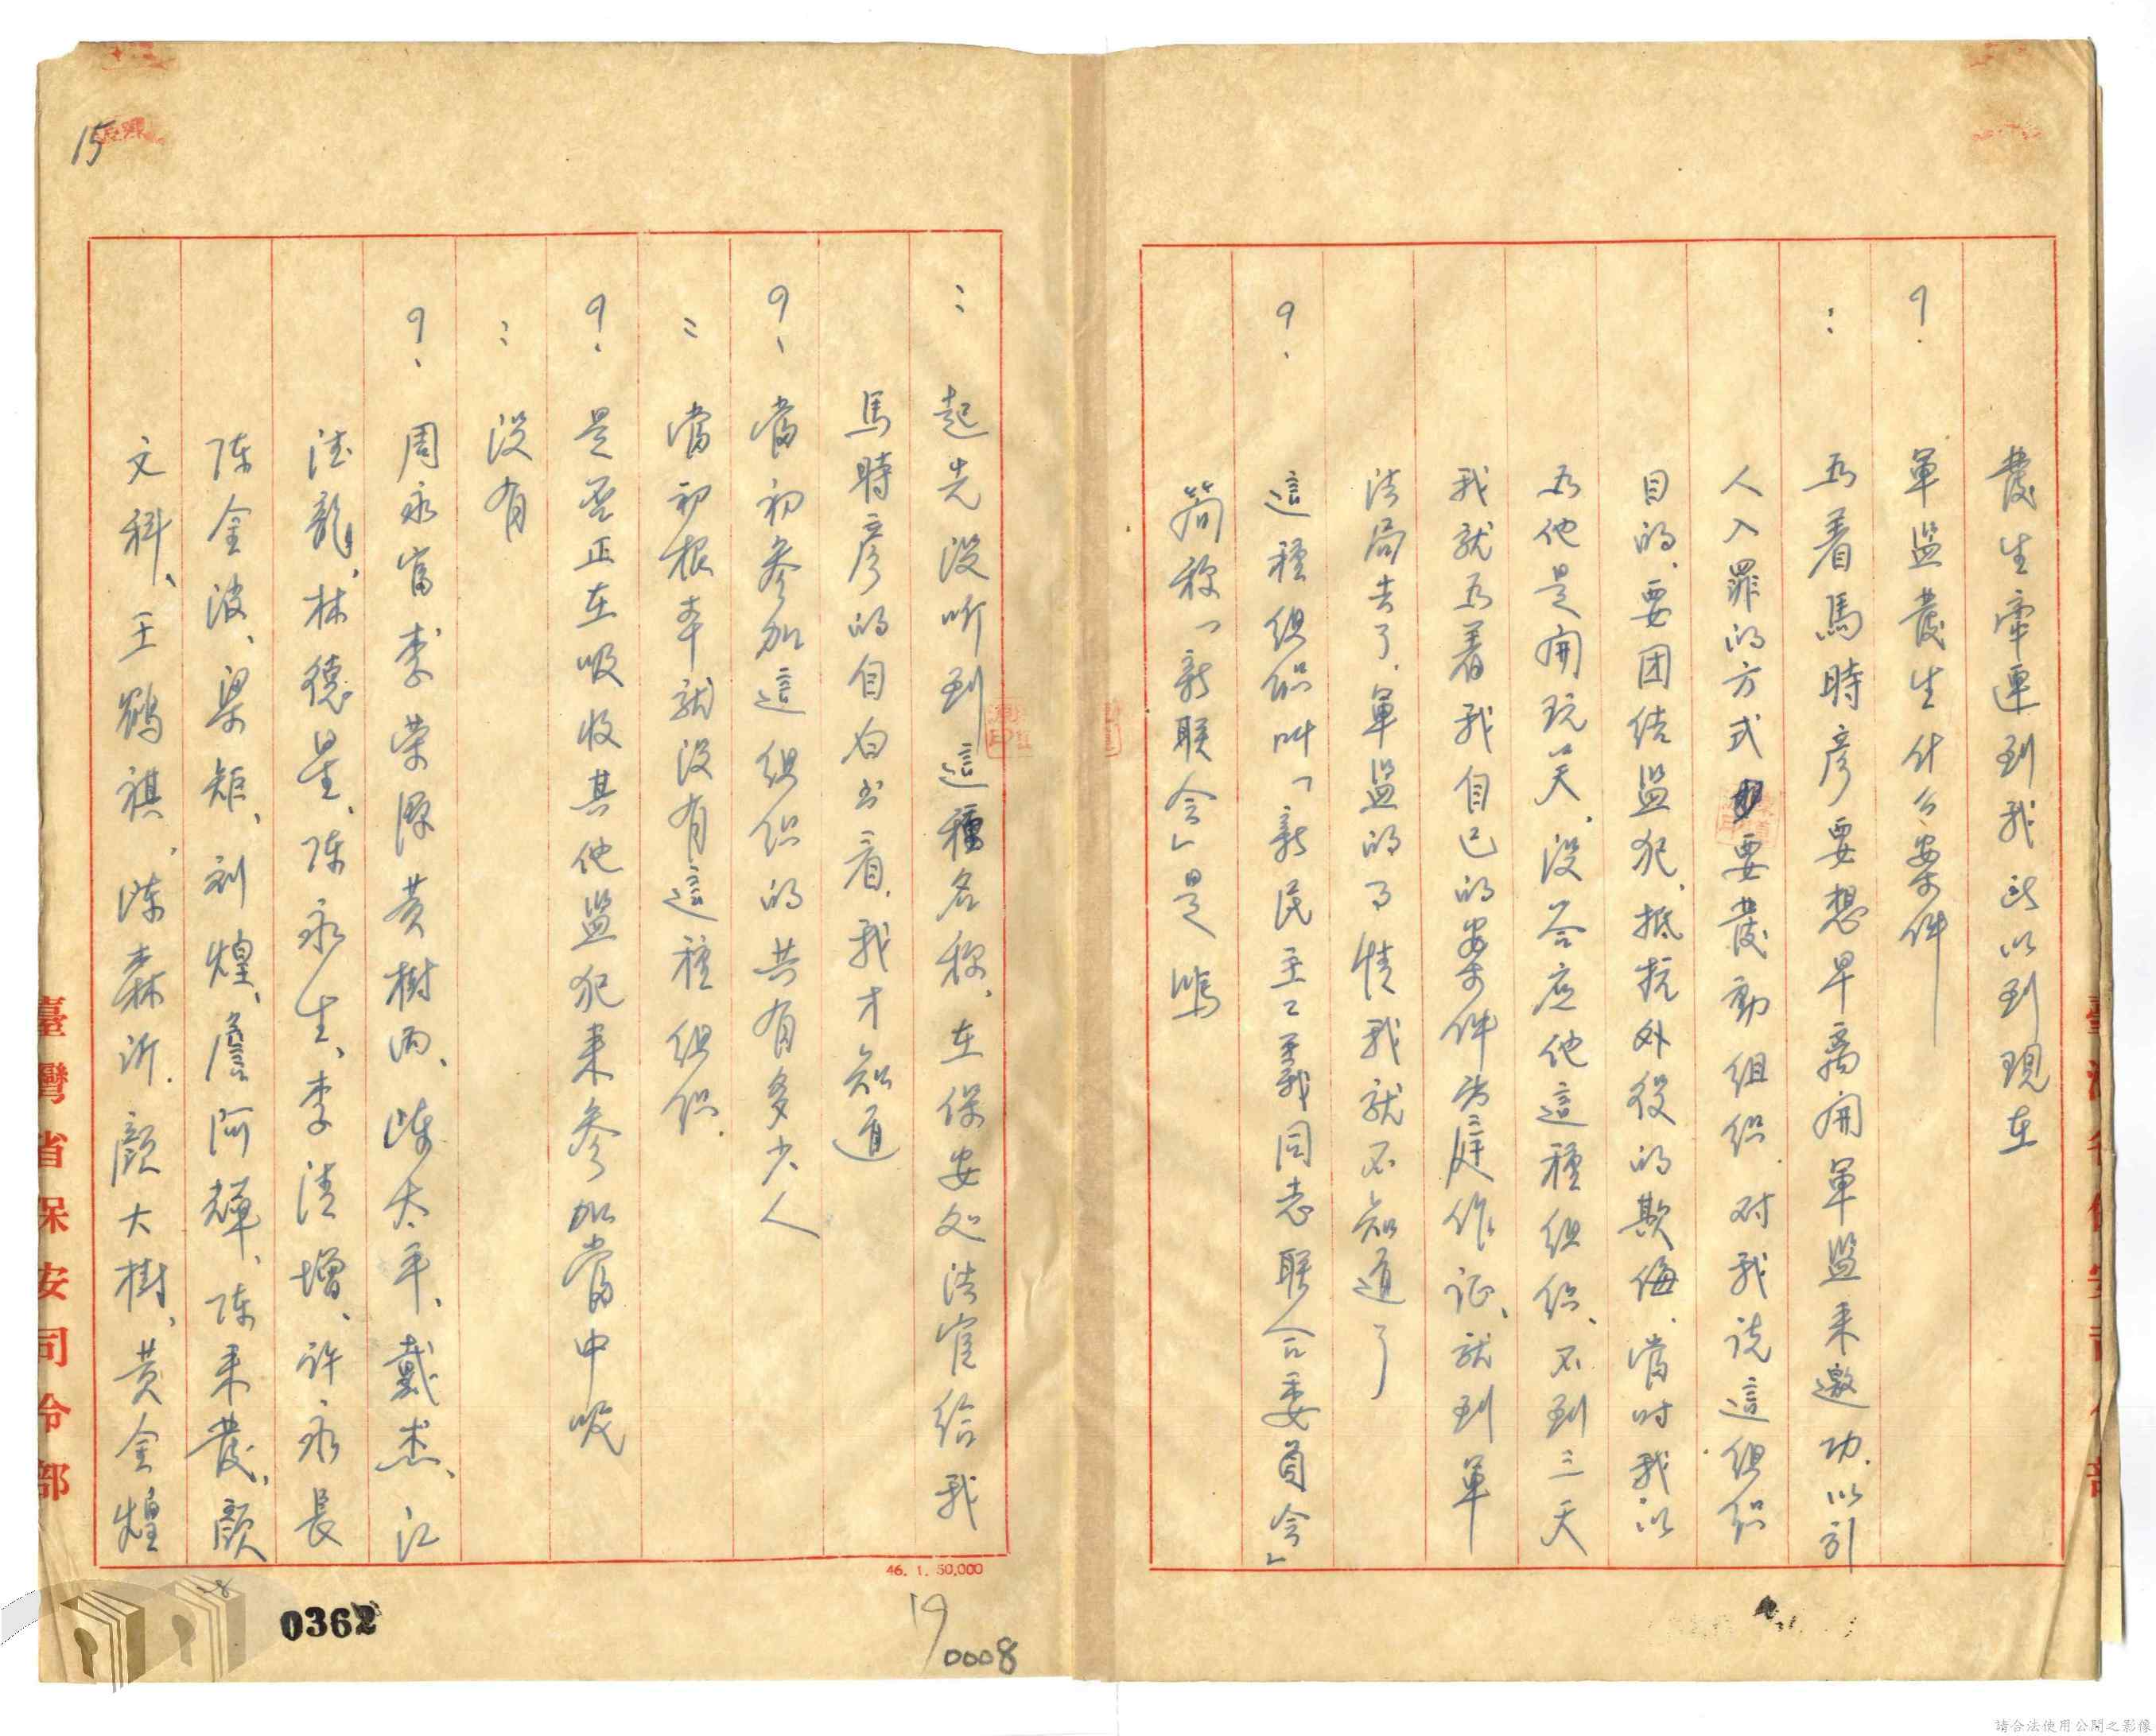 發生牽連到我所以到現在
？軍監發生什么案件
：為着馬時彥要想早离開軍監來邀功．以引
人入罪的方式要發動組织．对我说這组织
目的．要团结監犯、抵抗外役的欺侮．當时我以
為他是開玩笑．沒答应他這種组织、不到三天
我就為着我自己的案件出庭作证、就到軍
法局去了．軍監的事情我就不知道了
？這種组织叫「新民主主義同志联合委員会」
简称「新联会」是嗎
：起先沒听到這種名称．在保安处法官给我
馬時彥的自白书看．我才知道
？當初參加這组织的共有多少人
：當初根本就沒有這種组织．
？是否正在吸收其他監犯來參加當中呢
：沒有
？周永富李荣源黃樹丙、陳太平、戴杰、江
德龍、林德星、陈永生、李清增、許永長
陈金波、梁矩、刘煌、詹阿輝、陈来發、顏
文科、王鶴祺、陳森沂．顏大樹、黃金煌
臺灣省保安司令部
46. 1. 50,000
15
0362
19
0008
請合法使用公開之影像